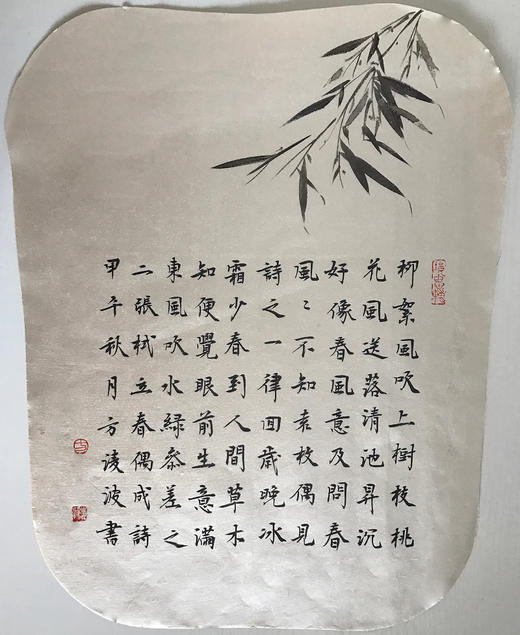 柳絮風吹上樹枝桃
花風送落清池昇沉
好像春風意及問春
風〻不知袁枚偶見
詩之一律回歲晚冰
霜少春到人間草木
知便覺眼前生意滿
東風吹水綠參差之
二張栻立春偶成詩
甲午秋月方淩波書